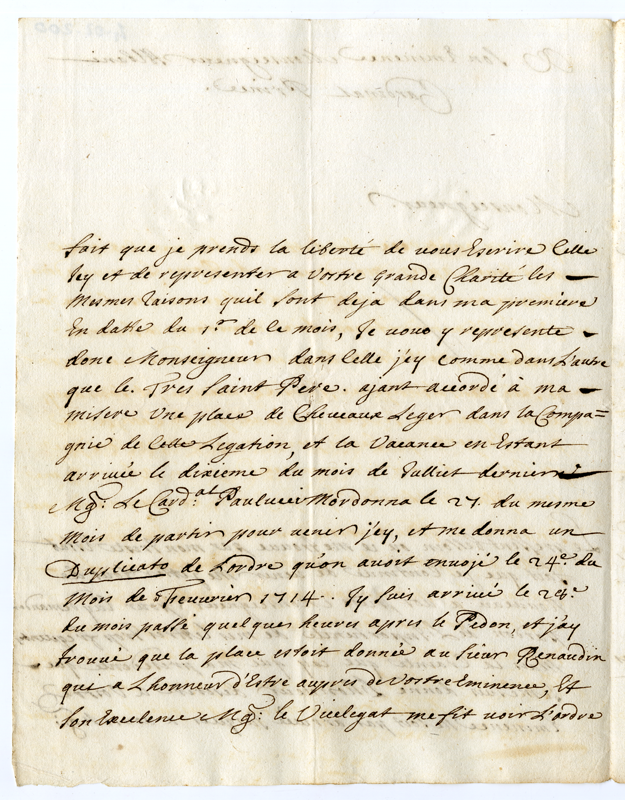 fait que je prends la liberté de vous Escrire Celle
Jcy et de representer a Vostre grande Charité les
Mesmes Raisons quil sont deja dans ma premiere
En datte du 1.r de ce mois, Je vous y represente
donc Monseigneur dans Celle jcy comme dans L'autre
que le. Tres Saint Pere. ajant accordé à ma
misere Une place de Cheveaux Leger dans la Compa=
gnie de Cette Legation, et la Vacance en Estant
arrivée le dixieme du mois de Julliet dernier
Mgr. Le Card.al Paulucci Mordonna le 27. du mesme
Mois de partir pour venir jcy, et me donna un
Duplicato de Lordre qu'on avoit envojé le 24.e du
Mois de Fevurier 1714. Jy suis arrivé le 24.e
du mois passé quelques heures apres le Pedon, et j'ay
trouvé que la place estoit donnée au Sieur Renaudin
qui a Lhonneur d'Estre aupres de Vostre Eminence, Et
Son Excelence Mgr. le Vicelegat me fit voir L'ordre